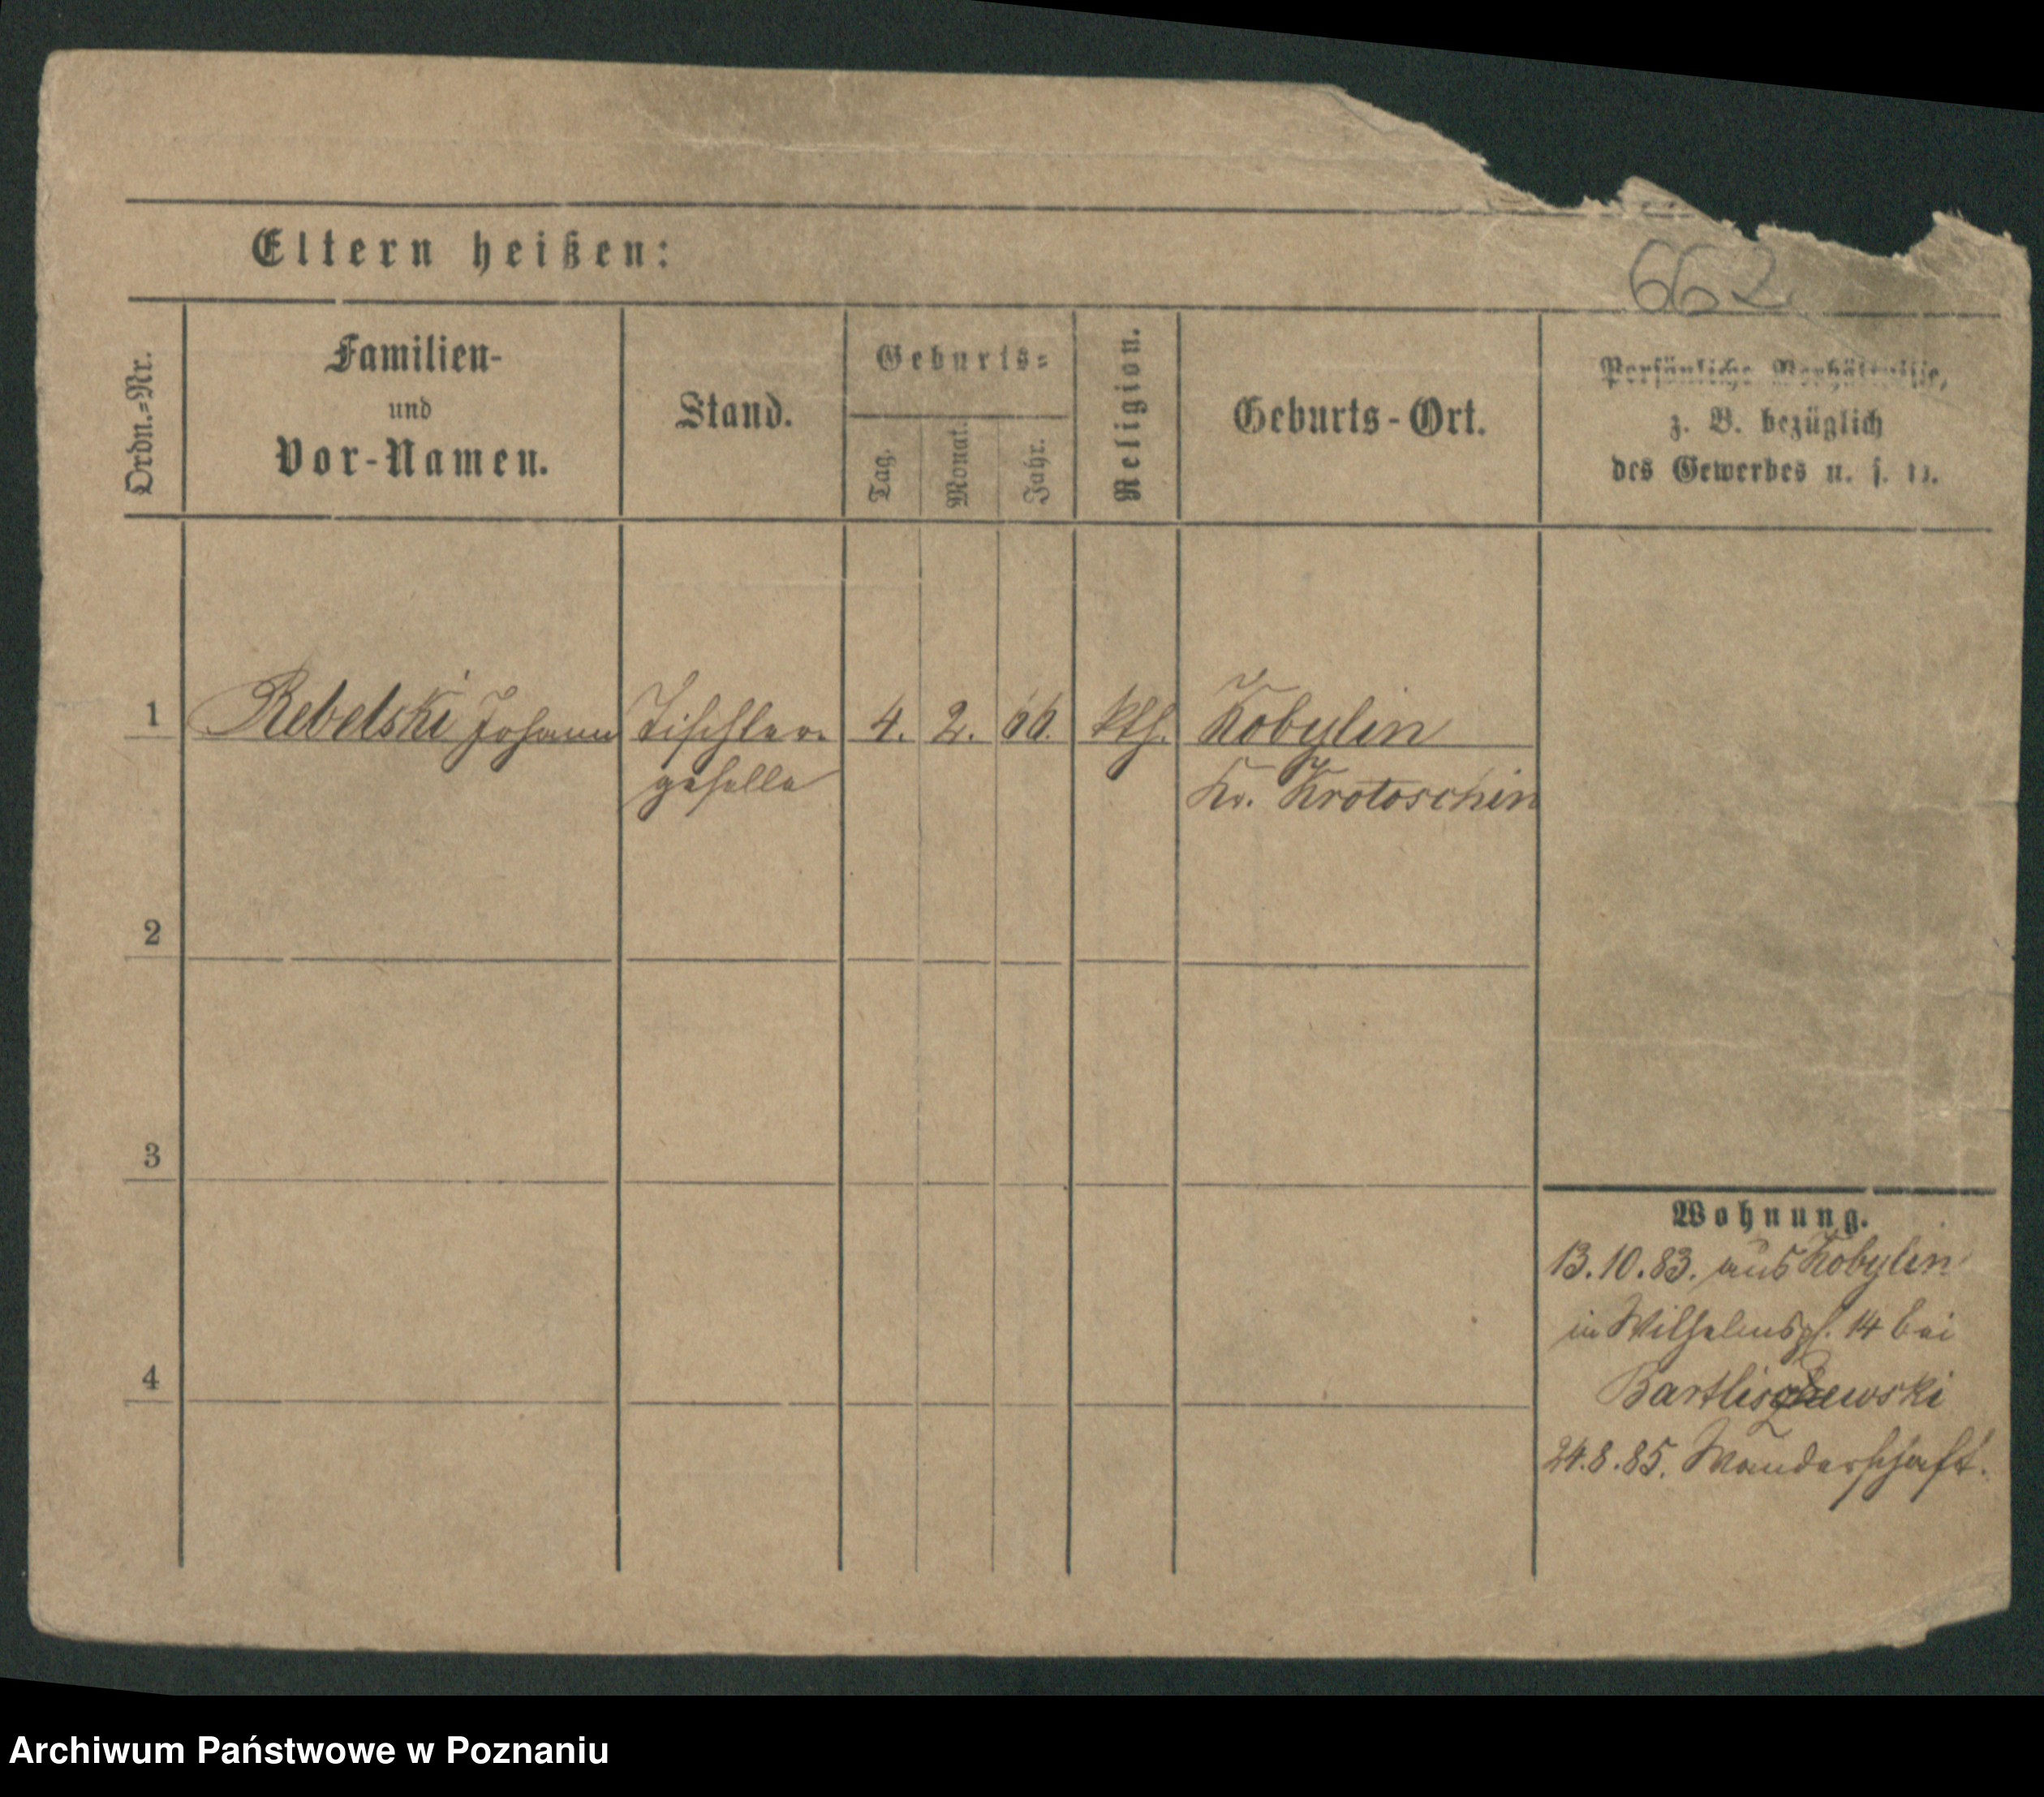 Eltern heißen:
662
Ordn.=Nr.
Familien-
und
Vor-Namen.
Stand.
Geburts=
Tag.
Monat.
Jahr.
Religion.
Geburts-Ort.
Persönliche Verhältnisse,
z. B. bezüglich
des Gewerbes u. s. w.
1 Rebelski Johann Tischler- 4. 2. 66. kth. Kobylin
geselle Kr. Krotoschin
2
3
4
Wohnung.
13.10.83. aus Kobylin
in Wilhelmspl. 14 bei
24.8.85. Wanderschaft.
Archiwum Państwowe w Poznaniu